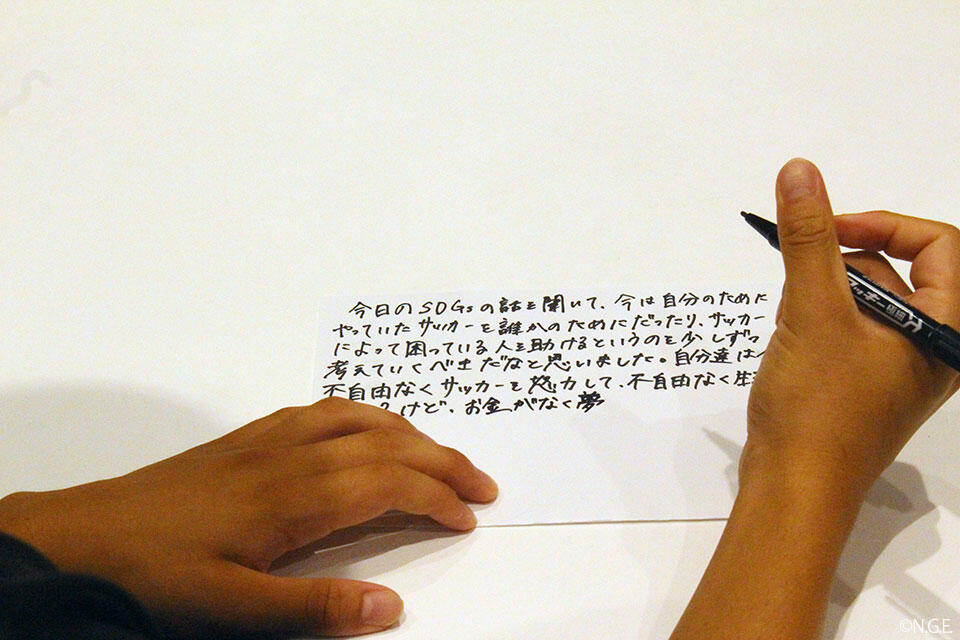 今日のSDGsの話を聞いて、今は自分のために
やっていたサッカーを誰かのためにだったり、サッカー
によって困っている人を助けるというのを少しずつ
考えていくべきだなと思いました。自分達は
不自由なくサッカーを努力して、不自由なく生
けど、お金がなく夢
マッキー極細
©N.G.E.